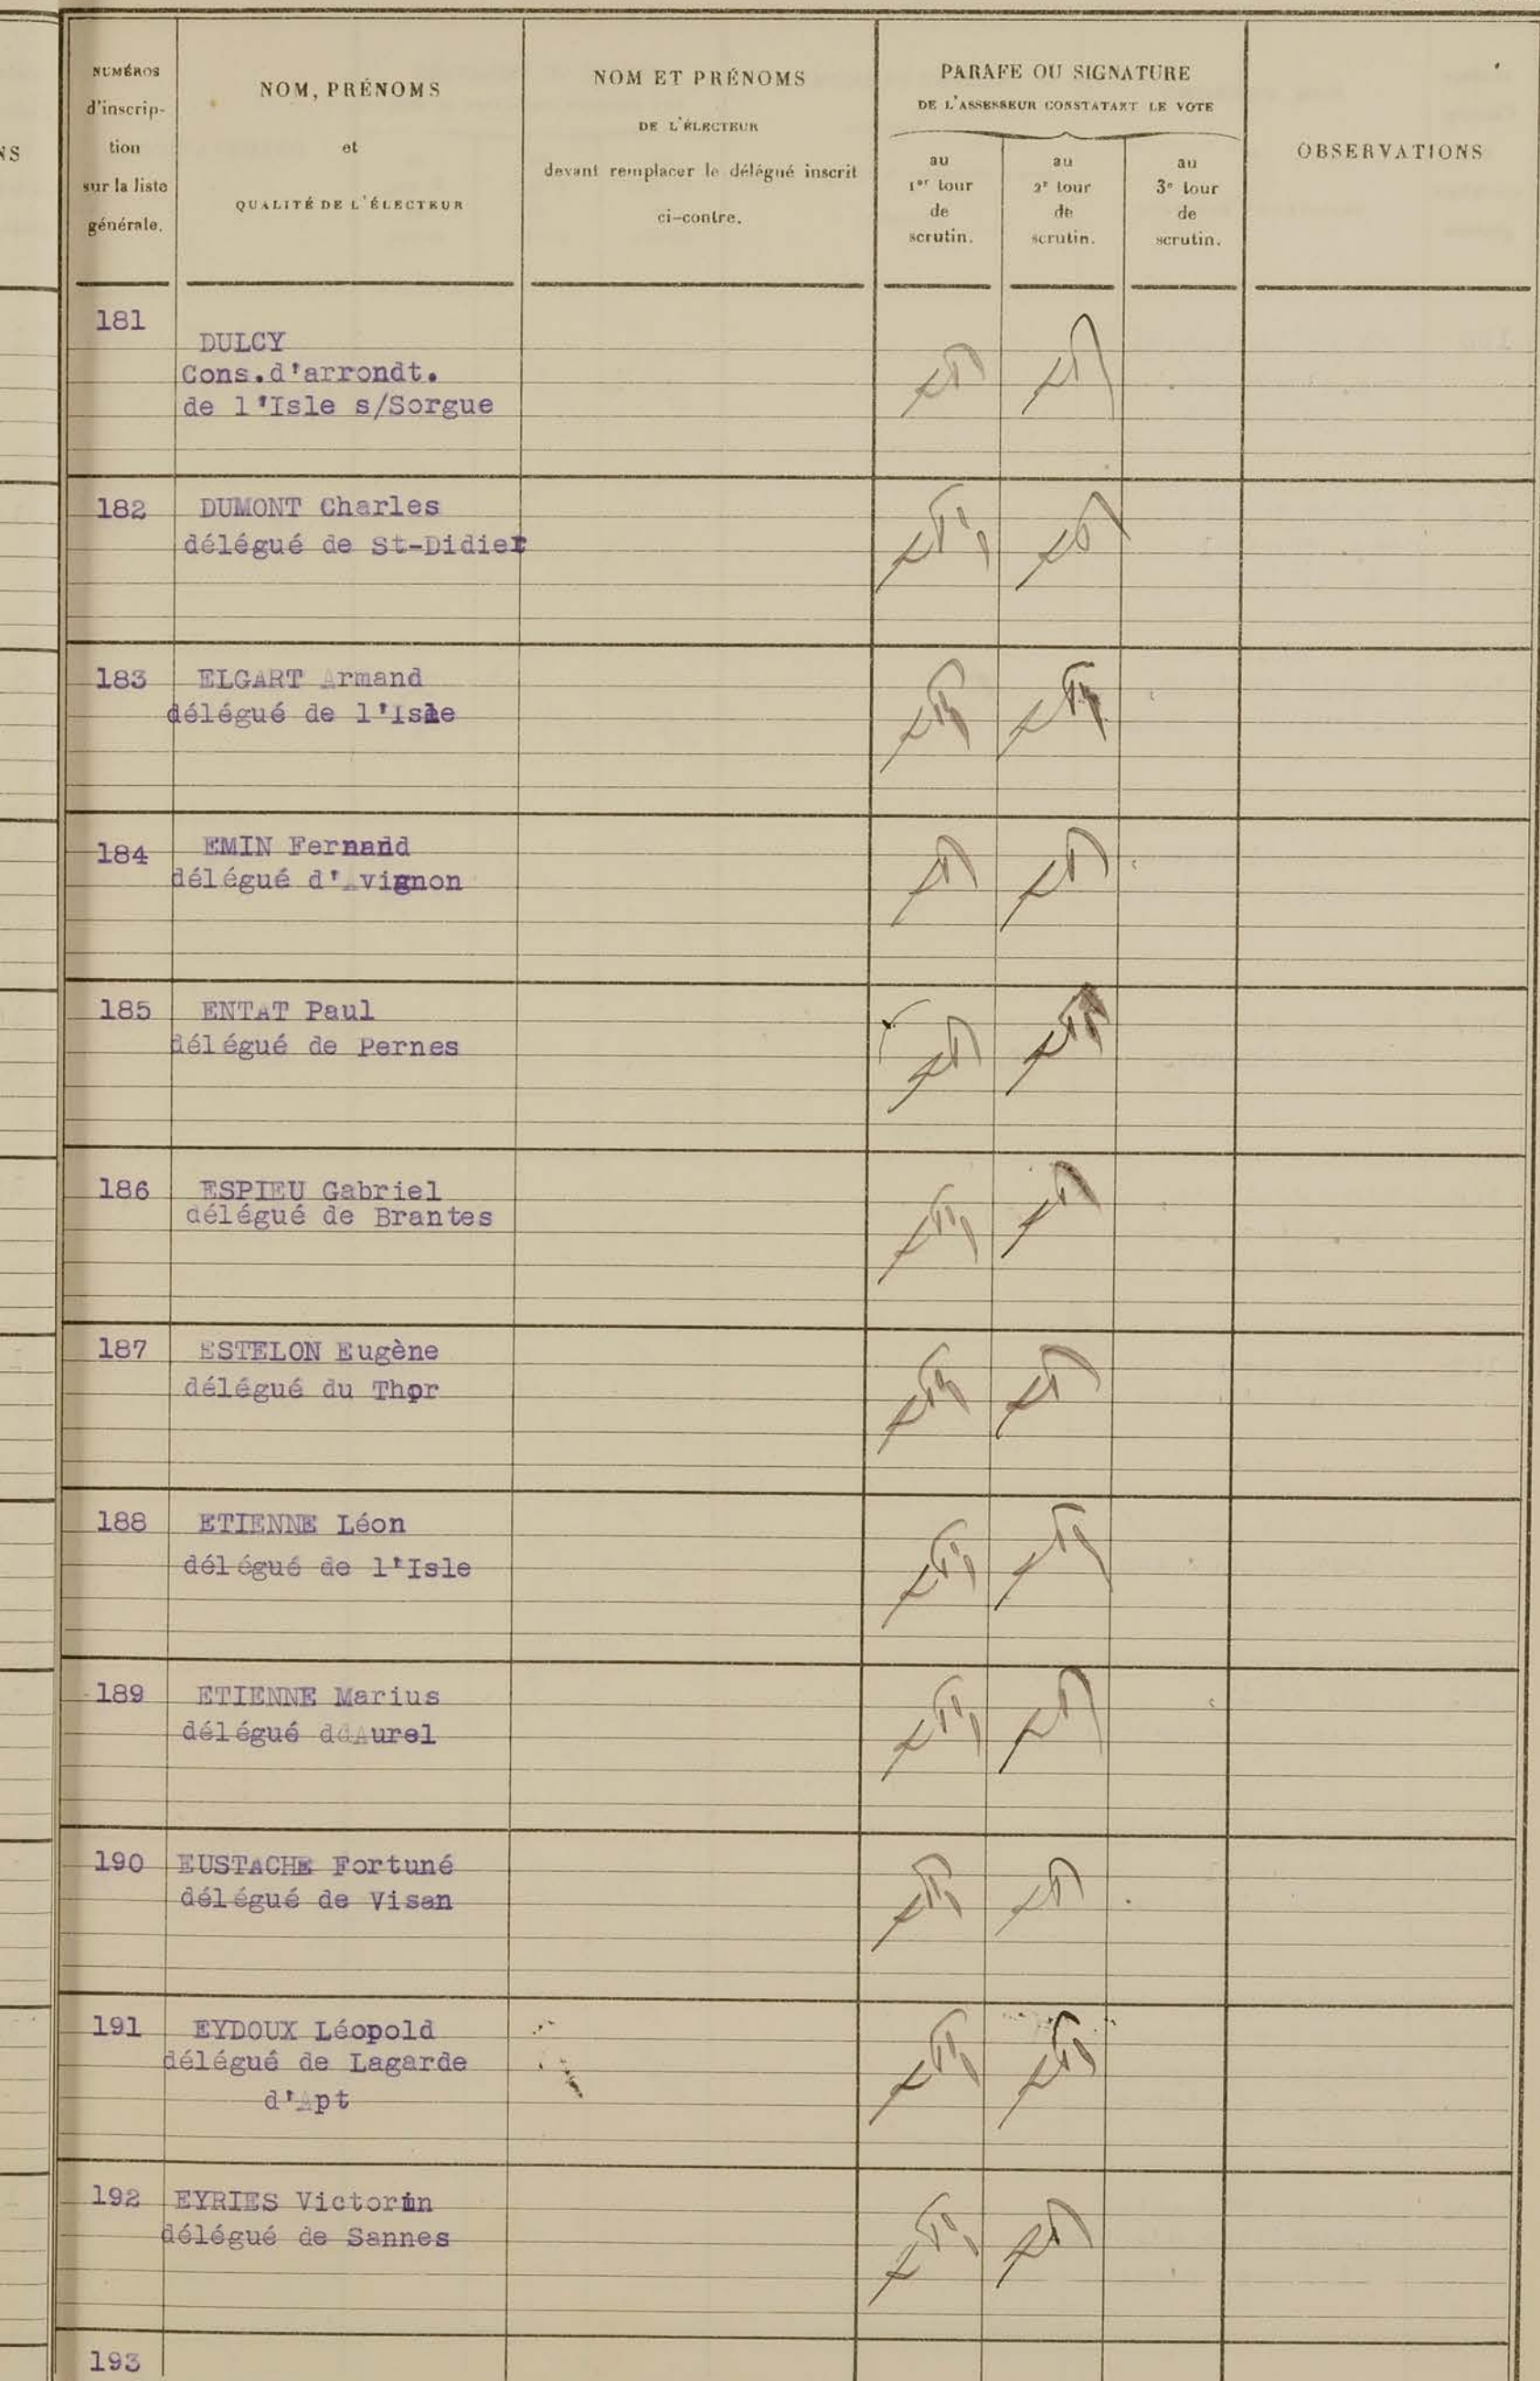 NS
NUMÉROS
d'inscrip-
tion
sur la liste
générale.
NOM, PRÉNOMS
et
QUALITÉ DE L'ÉLECTEUR
NOM ET PRÉNOMS
DE L'ÉLECTEUR
devant remplacer le délégué inscrit
ci-contre.
PARAFE OU SIGNATURE
DE L'ASSESSEUR CONSTATANT LE VOTE
au
1er tour
de
scrutin.
au
2e tour
de
scrutin.
au
3e tour
de
scrutin.
OBSERVATIONS
181
DULCY
Cons.d'arrondt.
de l'Isle s/Sorgue
182 DUMONT Charles
délégué de St-Didier
183 ELGART Armand
délégué de l'Isle
184 EMIN Fernand
délégué d'Avignon
185 ENTAT Paul
délégué de Pernes
186 ESPIEU Gabriel
délégué de Brantes
187 ESTELON Eugène
délégué du Thor
188 ETIENNE Léon
délégué de l'Isle
189 ETIENNE Marius
délégué d'Aurel
190 EUSTACHE Fortuné
délégué de Visan
191 EYDOUX Léopold
délégué de Lagarde
d'Apt
192 EYRIES Victorin
délégué de Sannes
193